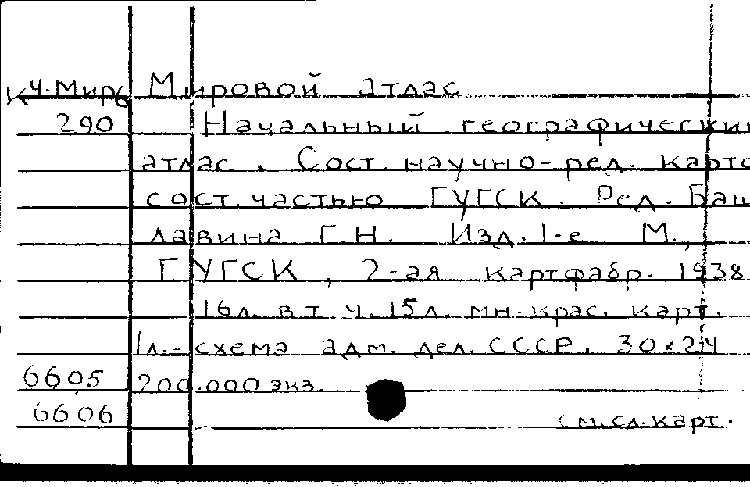 К4.Миро Мировой атлас
290 Начальный географически
атлас. Сост. научно-ред. карто
сост. частью ГУГСК. Ред. Баш
лавина Г.Н. Изд. 1-е М.,
ГУГСК, 2-ая картфабр. 1938
16л. в т.ч. 15л. мн.крас. карт.
1л.-схема адм. дел. СССР. 30x24
6605 200.000 экз.
6606 см.сл.карт.